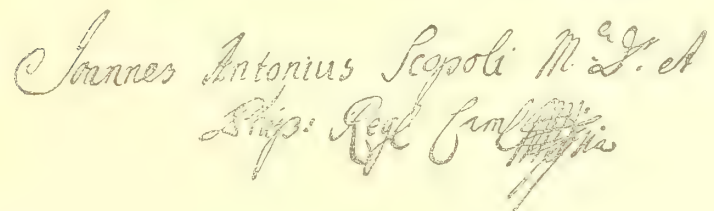 Joannes Antonius Scopoli M.æ Dr. et
Phijs: Regl Cam